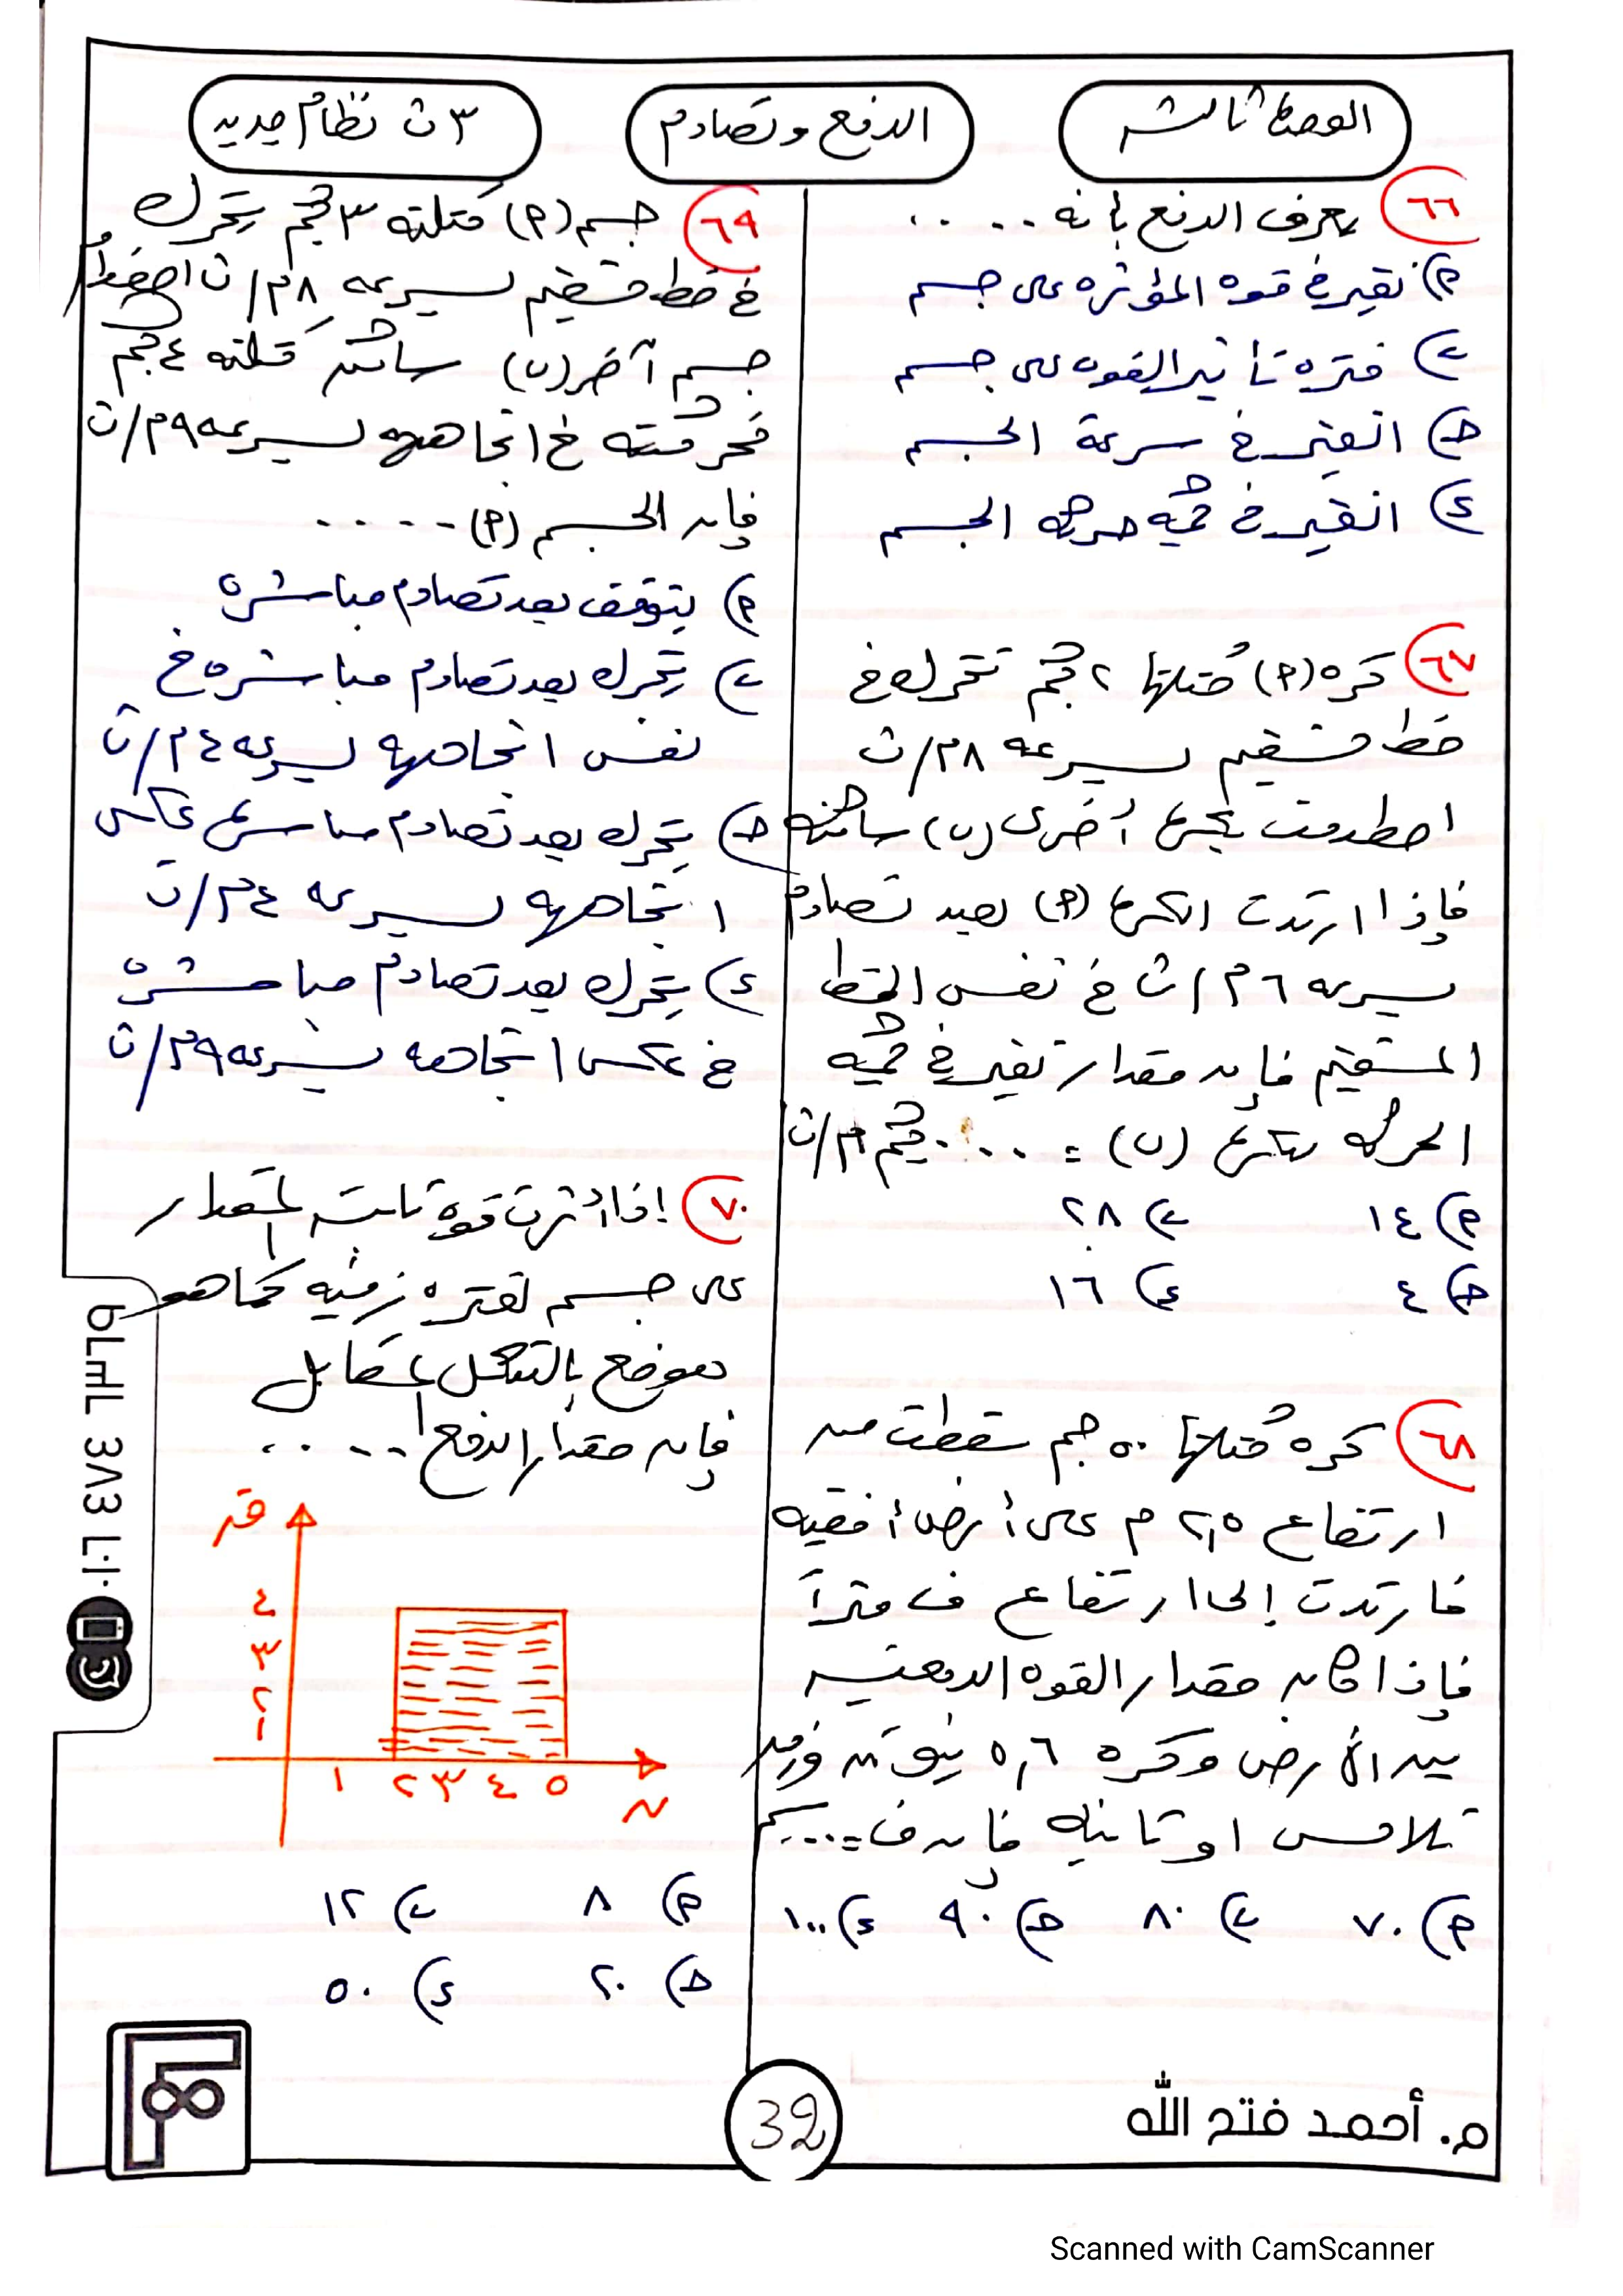 الوحدة الثالثة
الدفع وتصادم
٣ ث نظام جديد
٦٦ يعرف الدفع بأنه .....
أ) تغير في قوه المؤثره على جسم
ب) فتره تأثير القوه على جسم
ج) التغير في سرعة الجسم
د) التغير في كمية حركة الجسم
٦٧ كره (أ) كتلتها ٢ كجم تتحرك في
خط مستقيم بسرعه ٨ م/ث
اصطدمت بكرة أخرى (ب) ساكنه
فإذا ارتدت الكرة (أ) بعد تصادم
بسرعه ٦ م/ث في نفس الخط
المستقيم فإن مقدار تغير في كمية
الحركه للكرة (ب) = .... كجم م/ث
أ) ١٤ ب) ٢٨
ج) ٤ د) ١٦
٦٨ كره كتلتها ٥٠ جم سقطت من
ارتفاع ٢,٥ م على أرض أفقيه
فارتدت إلى ارتفاع ف متراً
فإذا كان مقدار القوه الدفعيه
بين الأرض وكره ٥,٦ نيوتن وزمن
تلامس ٫١ ثانية فإن ف = .... سم
أ) ٧٠ ب) ٨٠ ج) ٩٠ د) ١٠٠
٦٩ جسم (أ) كتلته ٣ كجم يتحرك
في خط مستقيم بسرعه ٨ م/ث اصطدم
جسم آخر (ب) ساكن كتلته ٤ كجم
فحركته في اتجاهه بسرعه ٩ م/ث
فإن الجسم (أ) .....
أ) يتوقف بعد تصادم مباشره
ب) يتحرك بعد تصادم مباشره في
نفس اتجاهه بسرعه ٤ م/ث
ج) يتحرك بعد تصادم مباشرة عكس
اتجاهه بسرعه ٤ م/ث
د) يتحرك بعد تصادم مباشره
في عكس اتجاهه بسرعه ٩ م/ث
٧٠ إذا أثرت قوة ثابته المقدار
على جسم لفتره زمنيه كما هو
موضح بالشكل المقابل
فإن مقدار الدفع .....
ق
٤
٣
٢
١
١ ٢ ٣ ٤ ٥
ن
أ) ٨ ب) ١٢
ج) ٢٠ د) ٥٠
32
م. أحمد فتح الله
Scanned with CamScanner